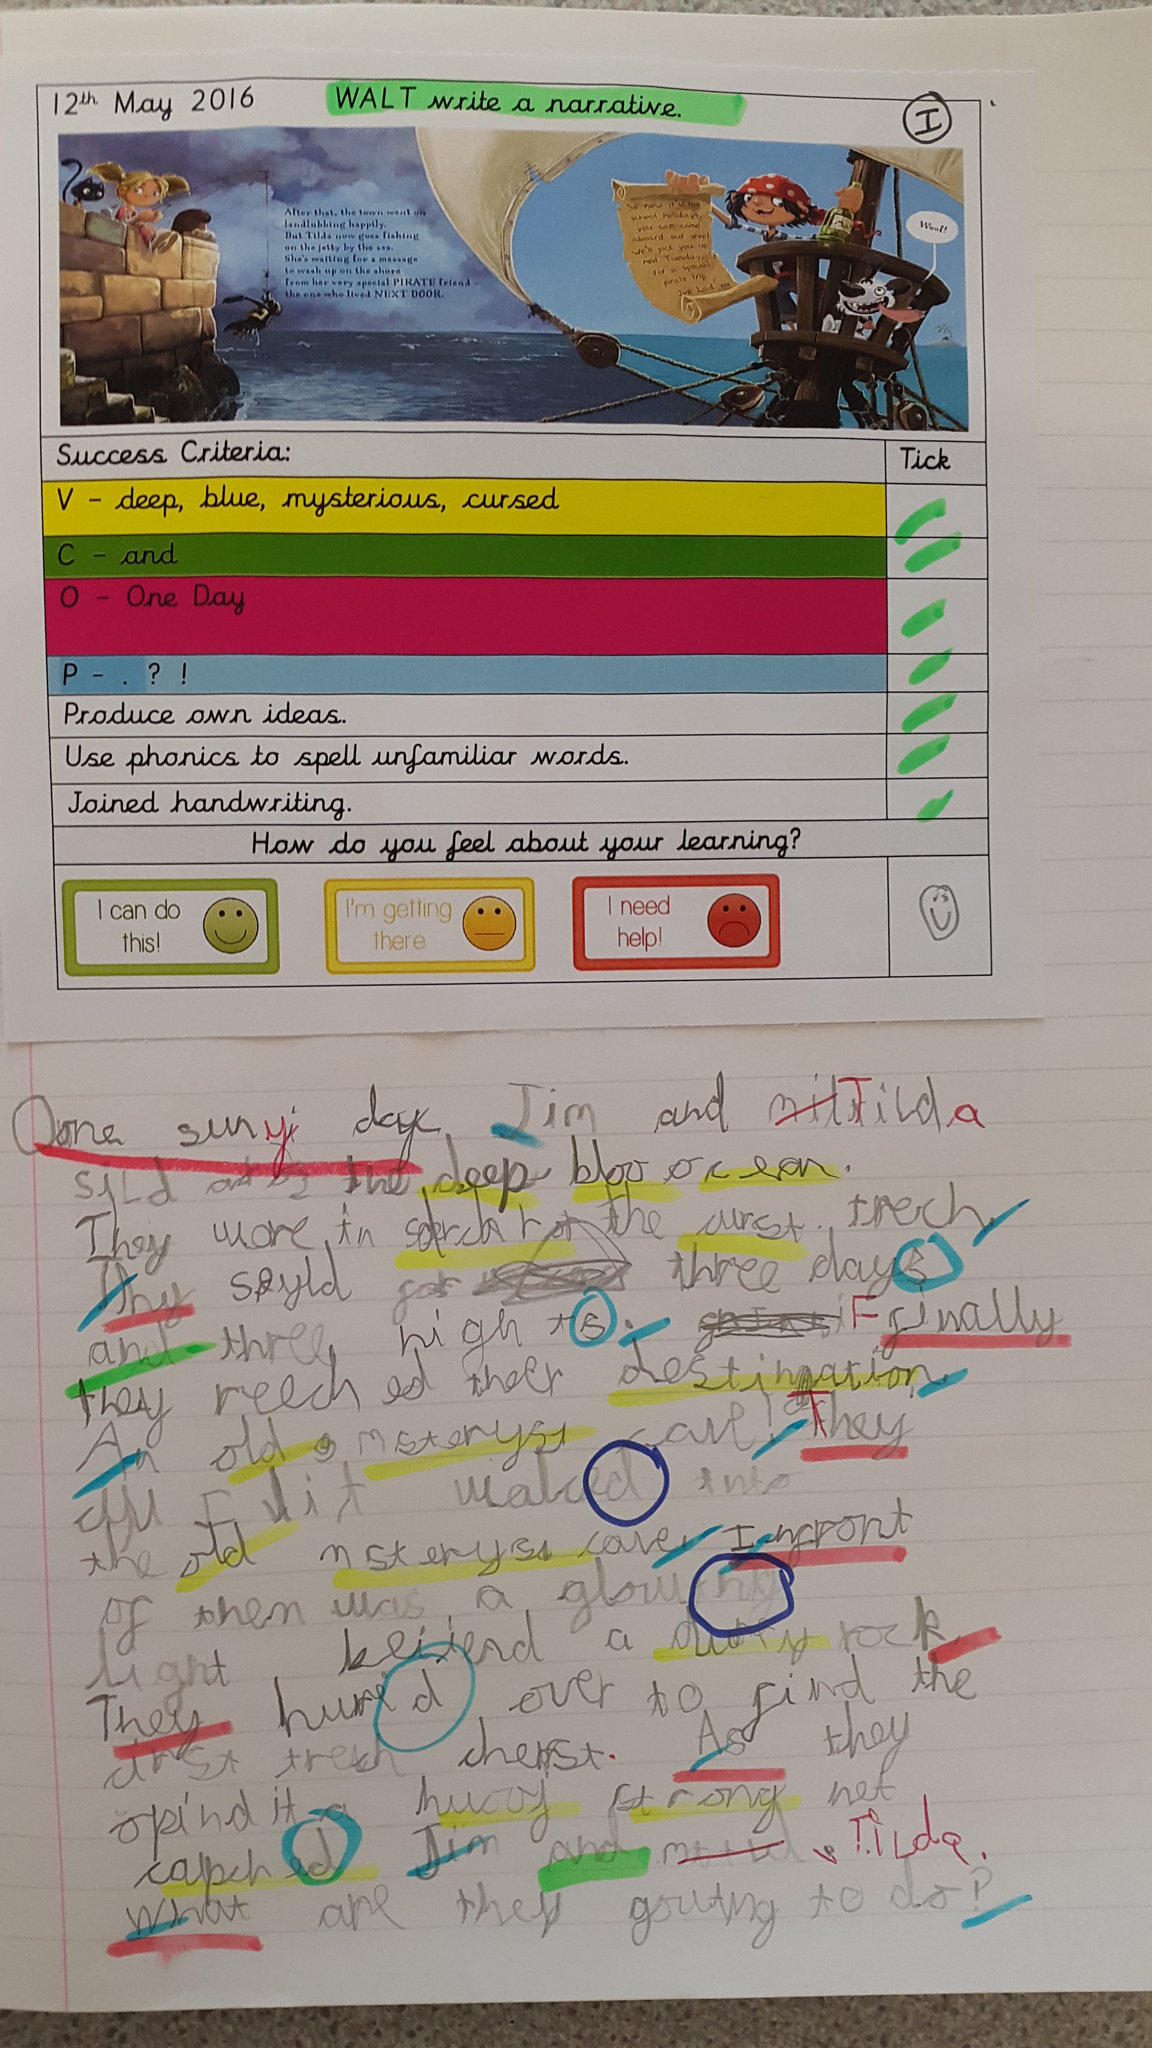 12th May 2016
WALT write a narrative.
I
After that, the town went on
landlubbing happily.
But Tilda now goes fishing
on the jetty by the sea.
She's waiting for a message
to wash up on the shore
from her very special PIRATE friend –
the one who lived NEXT DOOR.
So now it's the
school holidays,
you can come
aboard our ship!
We'll pick you up
next Tuesday,
for a special
pirate trip
Jim Lad xxx
Woof!
Success Criteria:
Tick
V – deep, blue, mysterious, cursed
C – and
O – One Day
P – . ? !
Produce own ideas.
Use phonics to spell unfamiliar words.
Joined handwriting.
How do you feel about your learning?
I can do
this!
I'm getting
there
I need
help!
Oone sunyi day Jim and Tilda
sild the deep bloo ocean.
They wore in serch of the curst trech
Thy sayld three days
and three nights. Finally
they reeched ther destination.
An old msteryss cave! They
walced into
the old msteryss cave. Infront
of them was a glowing
light beiiend a dusty rock
They huried over to find the
curst trech cherst. As they
opind it a huoog strong net
capched Jim and Tilda.
What are they gowing to do?